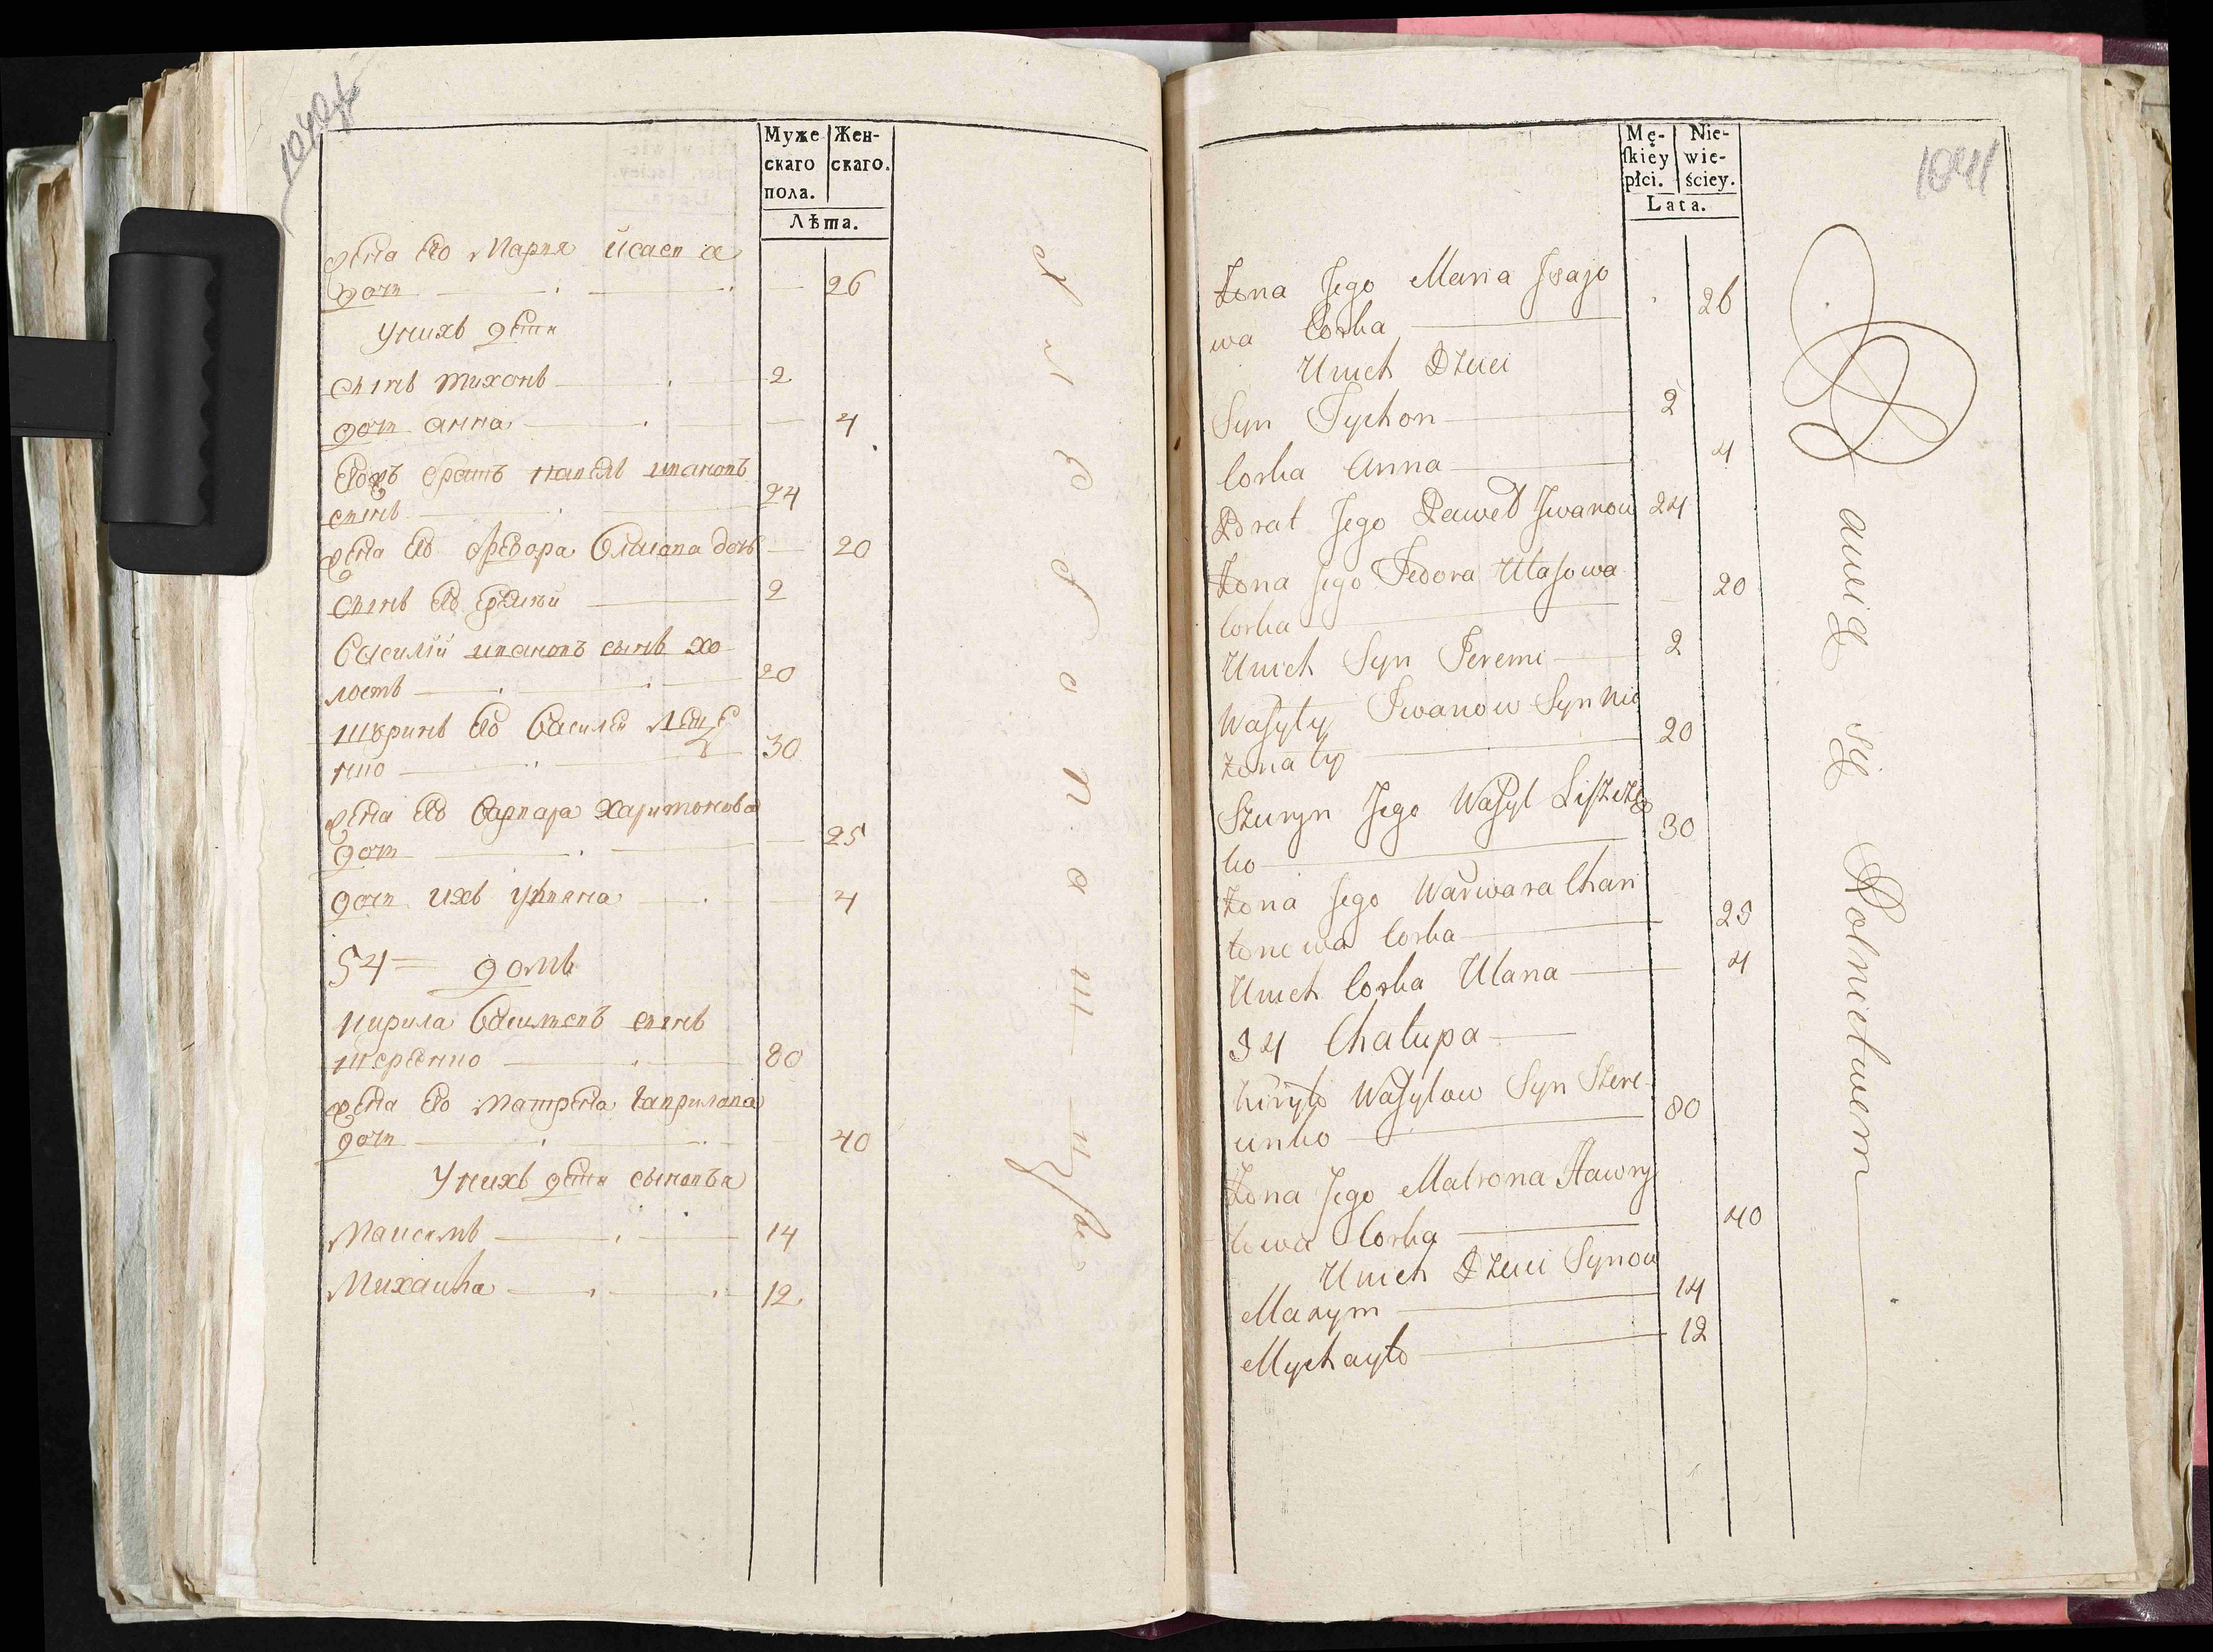 Муже
скаго
пола.
Жен-
скаго.
Лѣта.
жена его Мария исаева
дочь 26
У нихъ дети
сынъ тихонъ 2
дочь анна 4
его братъ павелъ ивановъ
сынъ 24
жена его Федора Власова дочь 20
сынъ его еремий 2
Василий ивановъ сынъ хо
лостъ 20
шуринъ его Василей
30
жена его варвара харитонова
дочь 25
дочь ихъ уляна 4
54 домъ
кирила Васильевъ сынъ
шеренко 80
жена его матрена гаврилова
дочь 40
У нихъ дети сыновья
Максимъ 14
Михайла 12
1041
Mę-
ſkiéy
płci.
Nie-
wie-
ściey.
Lata.
Żona Jego Maria Jsajo
wa Corka 26
Unich Dzieci
Syn Tychon 2
Corka Anna 4
Brat Jego Paweł Jwanow 24
Żona Jego Fedora Ułasowa
Corka 20
Unich Syn Jeremi 2
Wasyly Jwanow Syn Nie
żonaty 20
Szuryn Jego Wasyl Liszcze
ko 30
Żona Jego Warwara Chari
tonowa Corka 25
Unich Corka Ulana 4
54 Chałupa
Kiryło Wasylow Syn Szere
unko 80
Żona Jego Matrona Hawry
łowa Corka 40
Unich Dzieci Synow
Maxym 14
Mychayło 12
Bawią się Rolnictwem